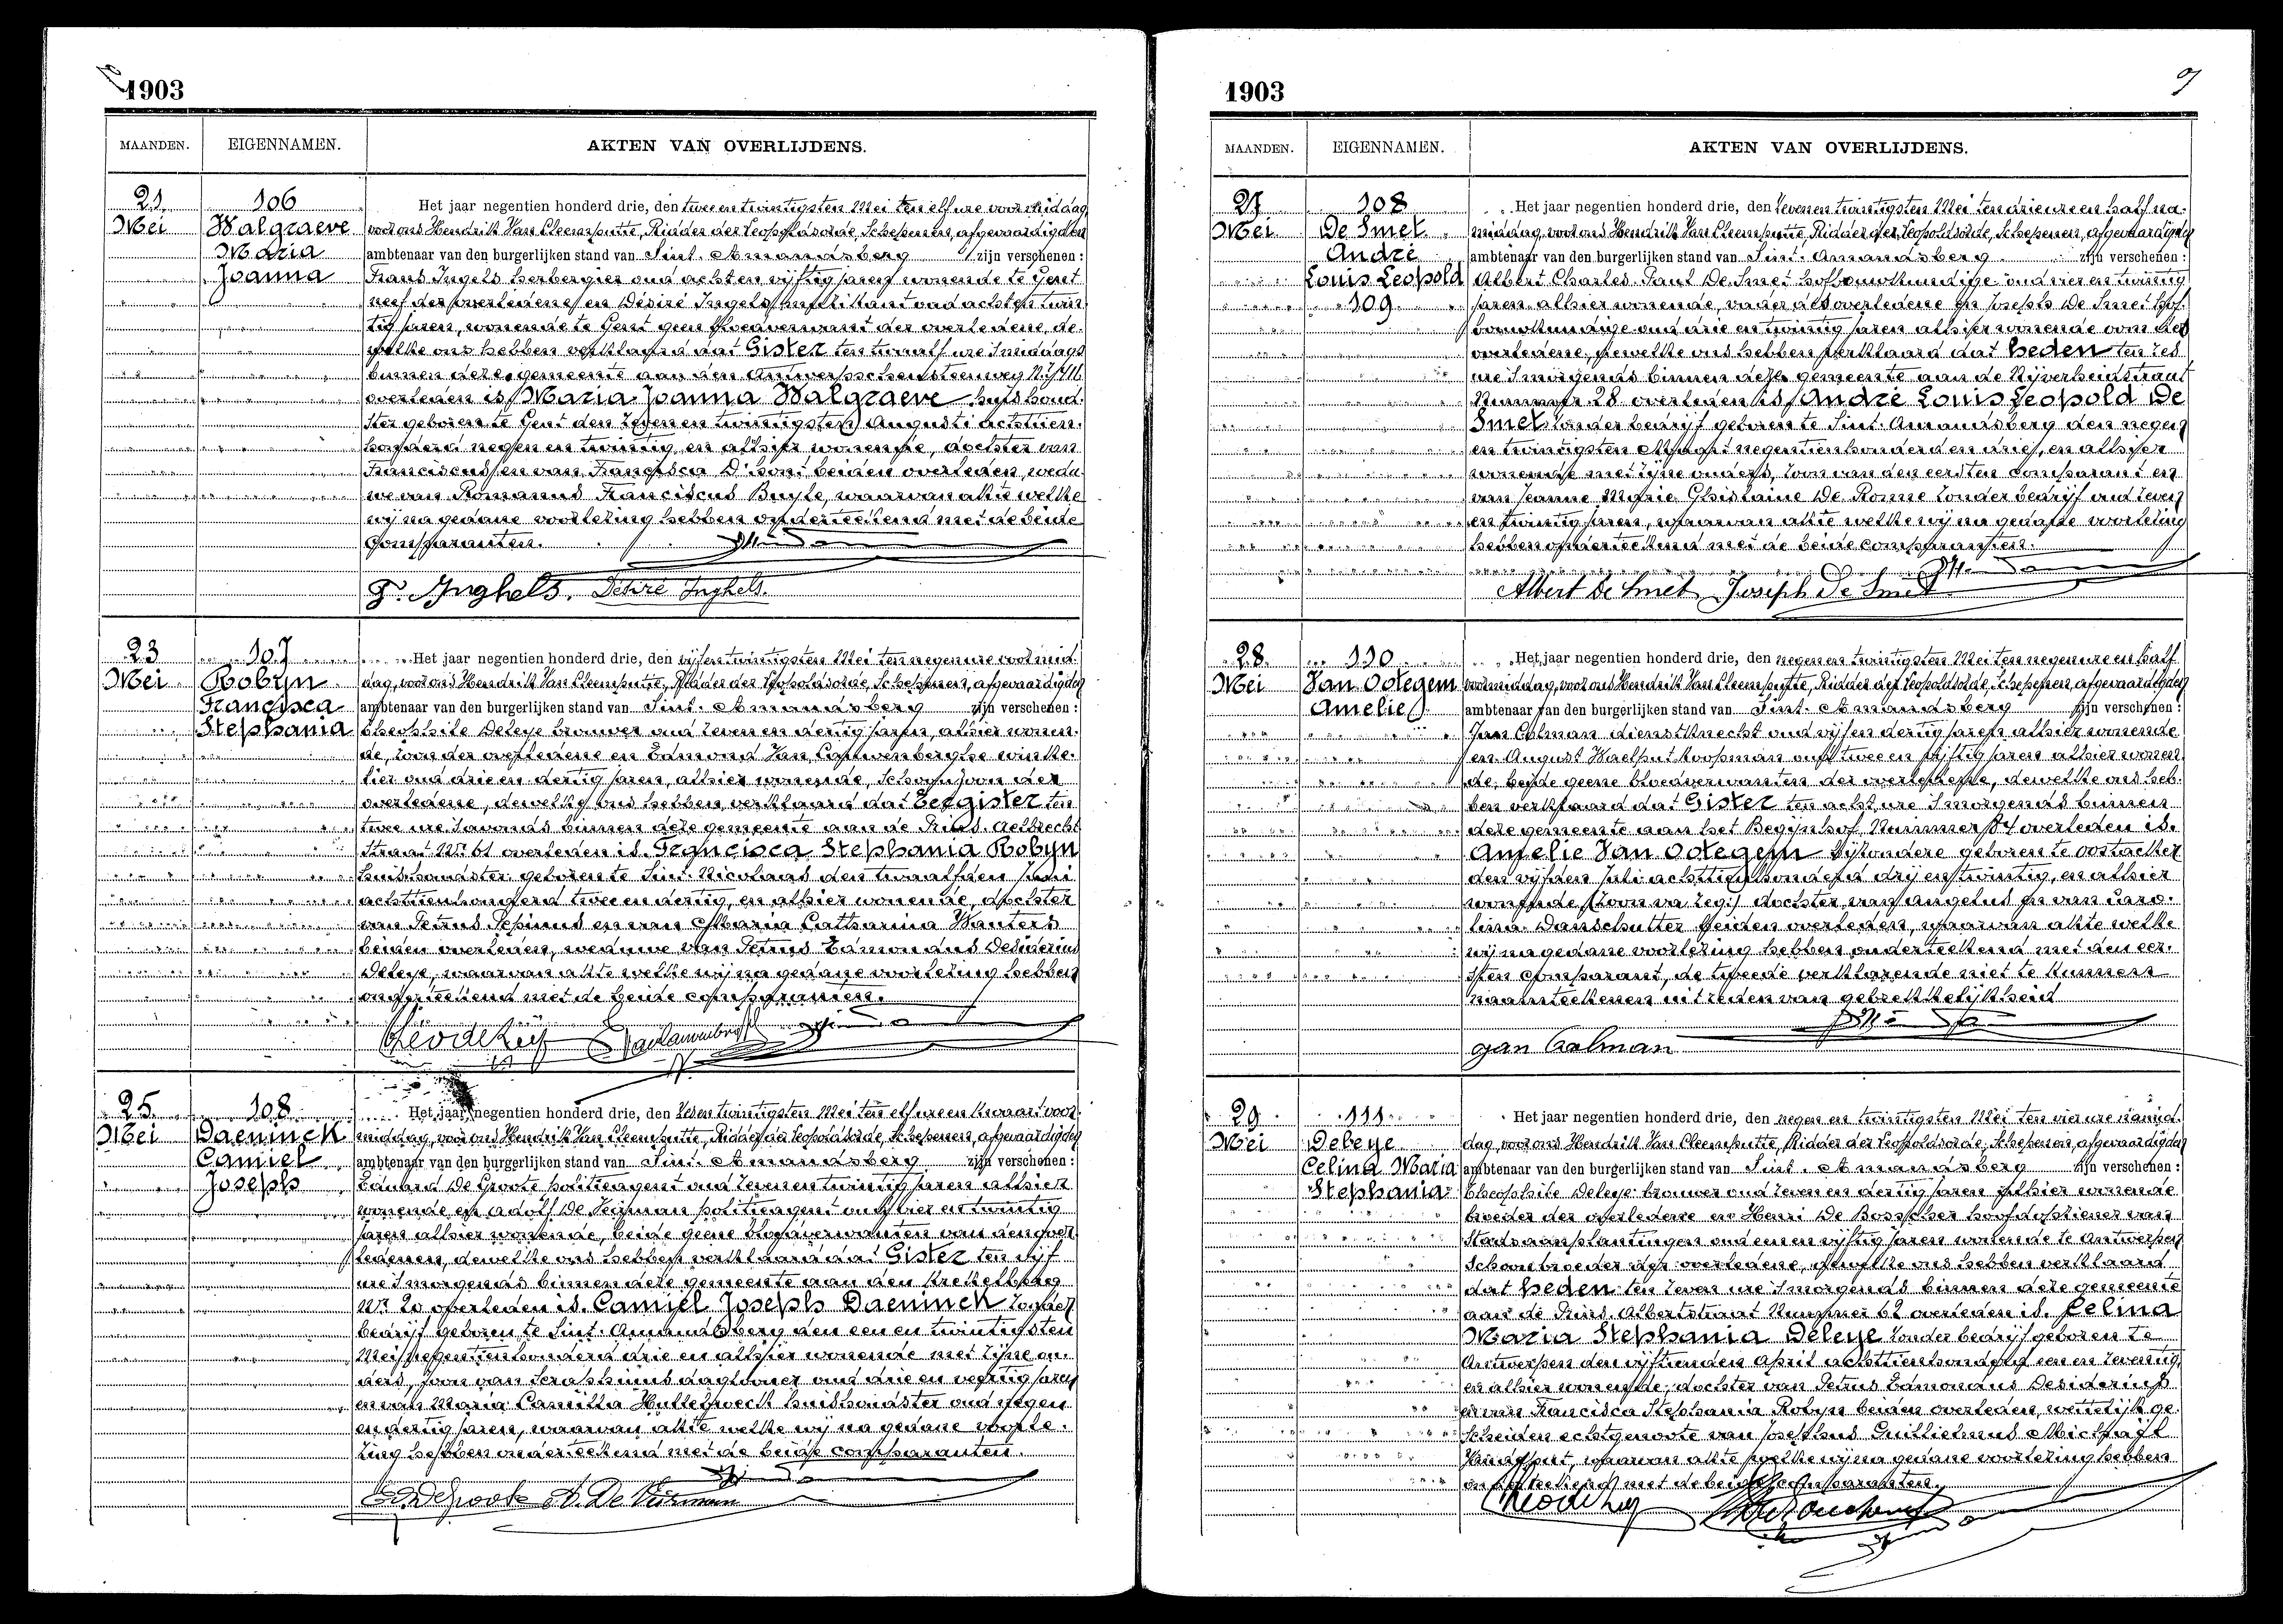 1903
MAANDEN. EIGENNAMEN. AKTEN VAN OVERLIJDENS.
21 Mei
106
Walgraeve
Maria
Joanna
Het jaar negentien honderd drie, den twee en twintigsten Mei ten elf ure voormiddag
voor ons Hendrik Van Cleemputte, Ridder der Leopoldsorde, Schepenen, afgevaardigden
ambtenaar van den burgerlijken stand van Sint-Amandsberg zijn verschenen:
Frans Ingels herbergier oud acht en vijftig jaren wonende te Gent
neef der overledene en Désiré Ingels oud acht en twin-
tig jaren, wonende te Gent geen bloedverwant der overledene, de-
welke ons hebben verklaard dat Gister ten twaalf ure smiddags
binnen deze gemeente aan den Antwerpschensteenweg
overleden is Maria Joanna Walgraeve huishoud-
ster geboren te Gent den zeven en twintigsten Augusti achttien-
honderd negen en twintig en alhier wonende, dochter van
Franciscus en van Francisca D'hont beiden overleden, wedu-
we van Romanus Franciscus Buyle, waarvan akte welke
wij na gedane voorlezing hebben onderteekend met de beide
Comparanten.
F. Inghels. Désiré Inghels.
23 Mei
107
Robyn
Francisca
Stephania
Het jaar negentien honderd drie, den vijf en twintigsten Mei ten negen ure voormid-
dag, voor ons Hendrik Van Cleemputte, Ridder der Leopoldsorde, Schepenen, afgevaardigden
ambtenaar van den burgerlijken stand van Sint-Amandsberg zijn verschenen:
Theophile Deleye brouwer oud zeven en dertig jaren, alhier wonen-
de, zoon der overledene en Edmond Van Cauwenberghe winke-
lier oud drie en dertig jaren, alhier wonende, schoonzoon der
overledene, dewelke ons hebben verklaard dat Eergister ten
twee ure savonds binnen deze gemeente aan de Prins Aelbrecht
Straat Nr. 61 overleden is Francisca Stephania Robyn
huishoudster geboren te Sint-Nicolaas den twaalfden Juni
achttienhonderd twee en dertig, en alhier wonende, dochter
van Petrus Josephus en van Maria Catharina Wauters
beiden overleden, weduwe van Petrus Edmondus Desiderius
Deleye, waarvan akte welke wij na gedane voorlezing hebben
onderteekend met de beide comparanten.
25 Mei
108
Daeninck
Camiel
Joseph
Het jaar negentien honderd drie, den zesen twintigsten Mei ten elf ure en kwaart voor-
middag, voor ons Hendrik Van Cleemputte, Ridder der Leopoldsorde, Schepenen, afgevaardigden
ambtenaar van den burgerlijken stand van Sint-Amandsberg zijn verschenen:
Eduard De Groote politieagent oud zeven en twintig jaren alhier
wonende en Adolf De politieagent oud vier en twintig
jaren alhier wonende, beide geene bloedverwanten van den over-
ledenen, dewelke ons hebben verklaard dat Gister ten vijf
ure smorgends binnen deze gemeente aan den Krekelberg
Nr. 20 overleden is Camiel Joseph Daeninck zonder
bedrijf geboren te Sint-Amandsberg den een en twintigsten
Mei negentienhonderd drie en alhier wonende met zijne ou-
ders, zoon van Seraphinus daglooner oud drie en veertig jaren
en van Maria Camillia huishoudster oud negen
en dertig jaren, waarvan akte welke wij na gedane voorle-
zing hebben onderteekend met de beide comparanten.
1903
9
MAANDEN. EIGENNAMEN. AKTEN VAN OVERLIJDENS.
27 Mei
108
De Smet
André
Louis Leopold
109
Het jaar negentien honderd drie, den zeven en twintigsten Mei ten drie ure en half na-
middag, voor ons Hendrik Van Cleemputte, Ridder der Leopoldsorde, Schepenen, afgevaardigden
ambtenaar van den burgerlijken stand van Sint-Amandsberg zijn verschenen:
Albert Charles Paul De Smet hofbouwkundige oud vier en twintig
jaren alhier wonende, vader des overledene en Joseph De Smet hof-
bouwkundige oud drie en twintig jaren alhier wonende oom des
overledene, dewelke ons hebben verklaard dat heden ten zes
ure smorgends binnen deze gemeente aan de Nijverheidstraat
Nummer 28 overleden is André Louis Leopold De
Smet zonder bedrijf geboren te Sint-Amandsberg den negen
en twintigsten negentienhonderd en drie, en alhier
wonende met zijne ouders, zoon van den eersten comparant en
van Jeanne Marie Ghislaine De Ronne zonder bedrijf oud zeven
en twintig jaren, waarvan akte welke wij na gedane voorlezing
hebben onderteekend met de beide comparanten.
Albert De Smet Joseph De Smet
28 Mei
110
Van Ootegem
Amelie
Het jaar negentien honderd drie, den negen en twintigsten Mei ten negen ure en half
voormiddag, voor ons Hendrik Van Cleemputte, Ridder der Leopoldsorde, Schepenen, afgevaardigden
ambtenaar van den burgerlijken stand van Sint-Amandsberg zijn verschenen:
Jan Colman dienstknecht oud vijf en dertig jaren alhier wonende
en August Waelput koopman oud twee en vijftig jaren alhier wonen-
de, beide geene bloedverwanten der overledene, dewelke ons heb-
ben verklaard dat Gister ten acht ure smorgends binnen
deze gemeente aan het Begijnhof, Nummer 84 overleden is.
Amelie Van Ootegem bijzondere geboren te Oostacker
den vijfden Juli achttienhonderd drij en twintig, en alhier
wonende (zoon zeg:) dochter van Angelus en van Caro-
lina Danschutter beiden overleden, waarvan akte welke
wij na gedane voorlezing hebben onderteekend met den eer-
sten comparant, de tweede verklarende niet te kunnen
naamteekenen uit reden van gebrekkelijkheid
Jan Colman
29 Mei
111
Deleye
Celina Maria
Stephania
Het jaar negentien honderd drie, den negen en twintigsten Mei ten vier ure namid-
dag, voor ons Hendrik Van Cleemputte, Ridder der Leopoldsorde, Schepenen, afgevaardigden
ambtenaar van den burgerlijken stand van Sint-Amandsberg zijn verschenen:
Theophile Deleye brouwer oud zeven en dertig jaren alhier wonende
broeder der overledene en Henri De Bosscher hoofdopziener van
Stadsaanplantingen oud een en vijftig jaren wonende te Antwerpen
Schoonbroeder der overledene, dewelke ons hebben verklaard
dat heden ten zeven ure smorgends binnen deze gemeente
aan de Prins Albertstraat Nummer 62 overleden is. Celina
Maria Stephania Deleye zonder bedrijf geboren te
Antwerpen den vijftienden April achttienhonderd een en zeventig
en alhier wonende, dochter van Petrus Edmondus Desiderius
en van Francisca Stephania Robyn beiden overleden, wettelijk ge-
scheiden echtgenoote van Josephus Guillielmus Michaël
waarvan akte welke wij na gedane voorlezing hebben
onderteekend met de beide comparanten.